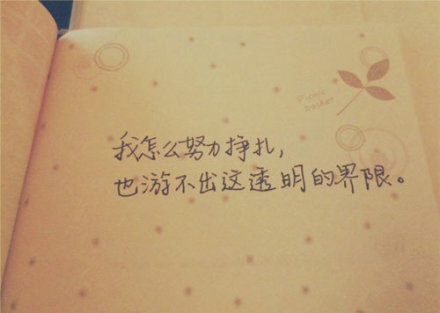 Picnic
basket
我怎么努力挣扎，
也游不出这透明的界限。